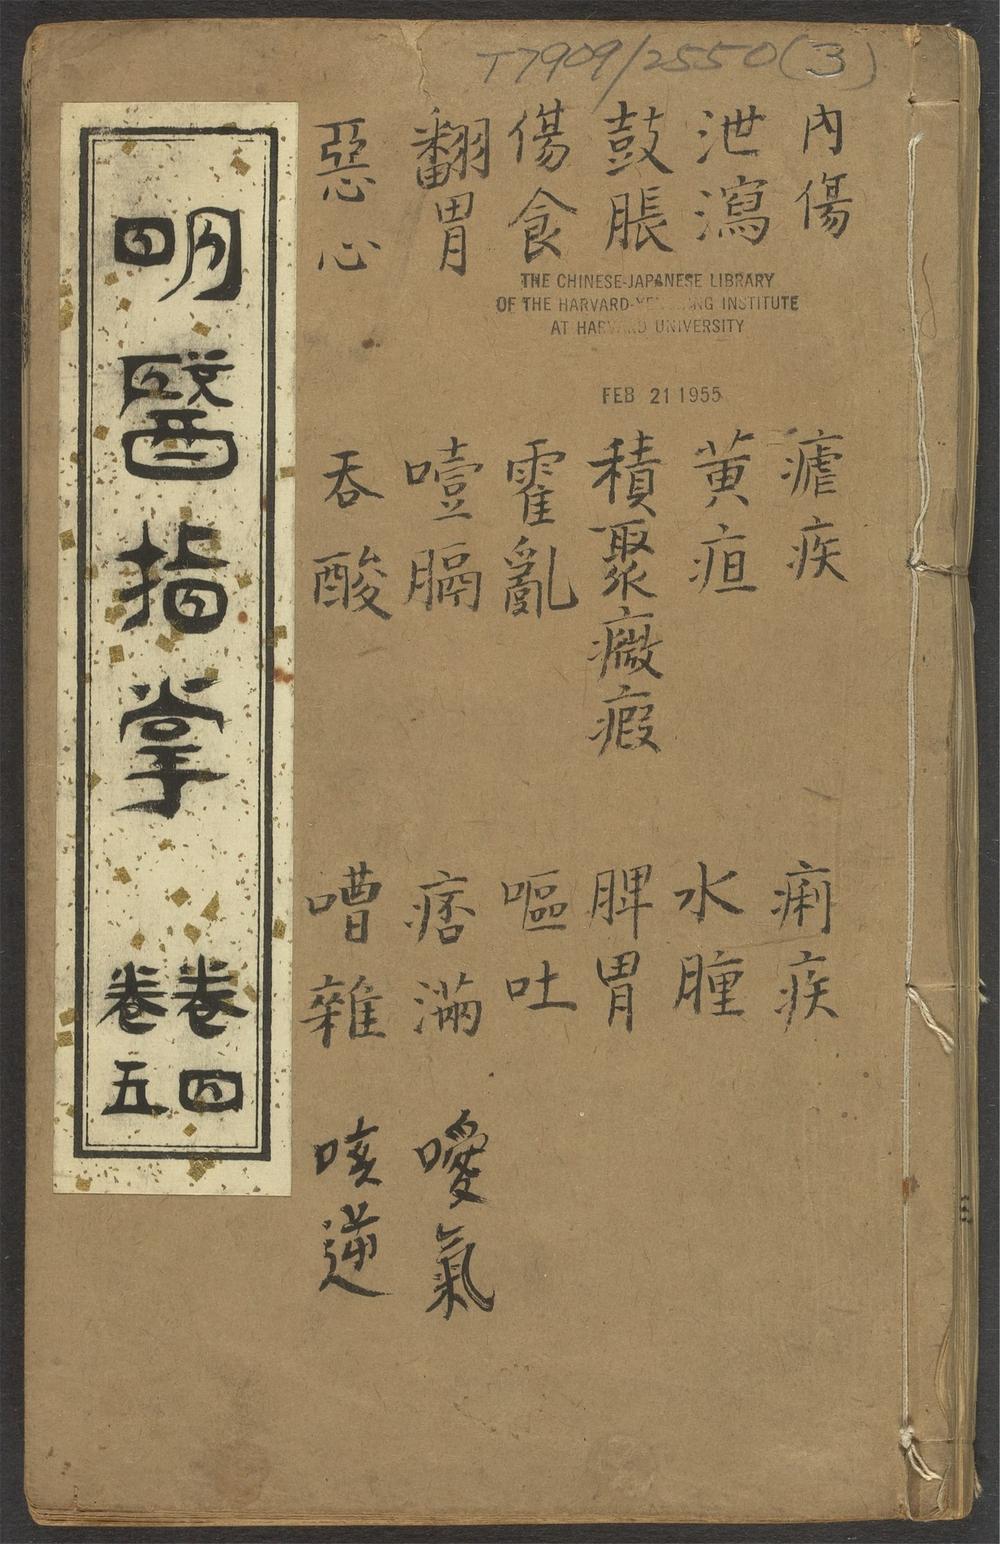 T7909/2550(3)
內傷 瘧疾 痢疾
泄瀉 黃疸 水腫
鼓脹 積聚癥瘕 脾胃
傷食 霍亂 嘔吐
翻胃 噎膈 痞滿 噯氣
惡心 吞酸 嘈雜 咳逆
THE CHINESE-JAPANESE LIBRARY
OF THE HARVARD-YENCHING INSTITUTE
AT HARVARD UNIVERSITY
FEB 21 1955
明醫指掌
卷四
卷五